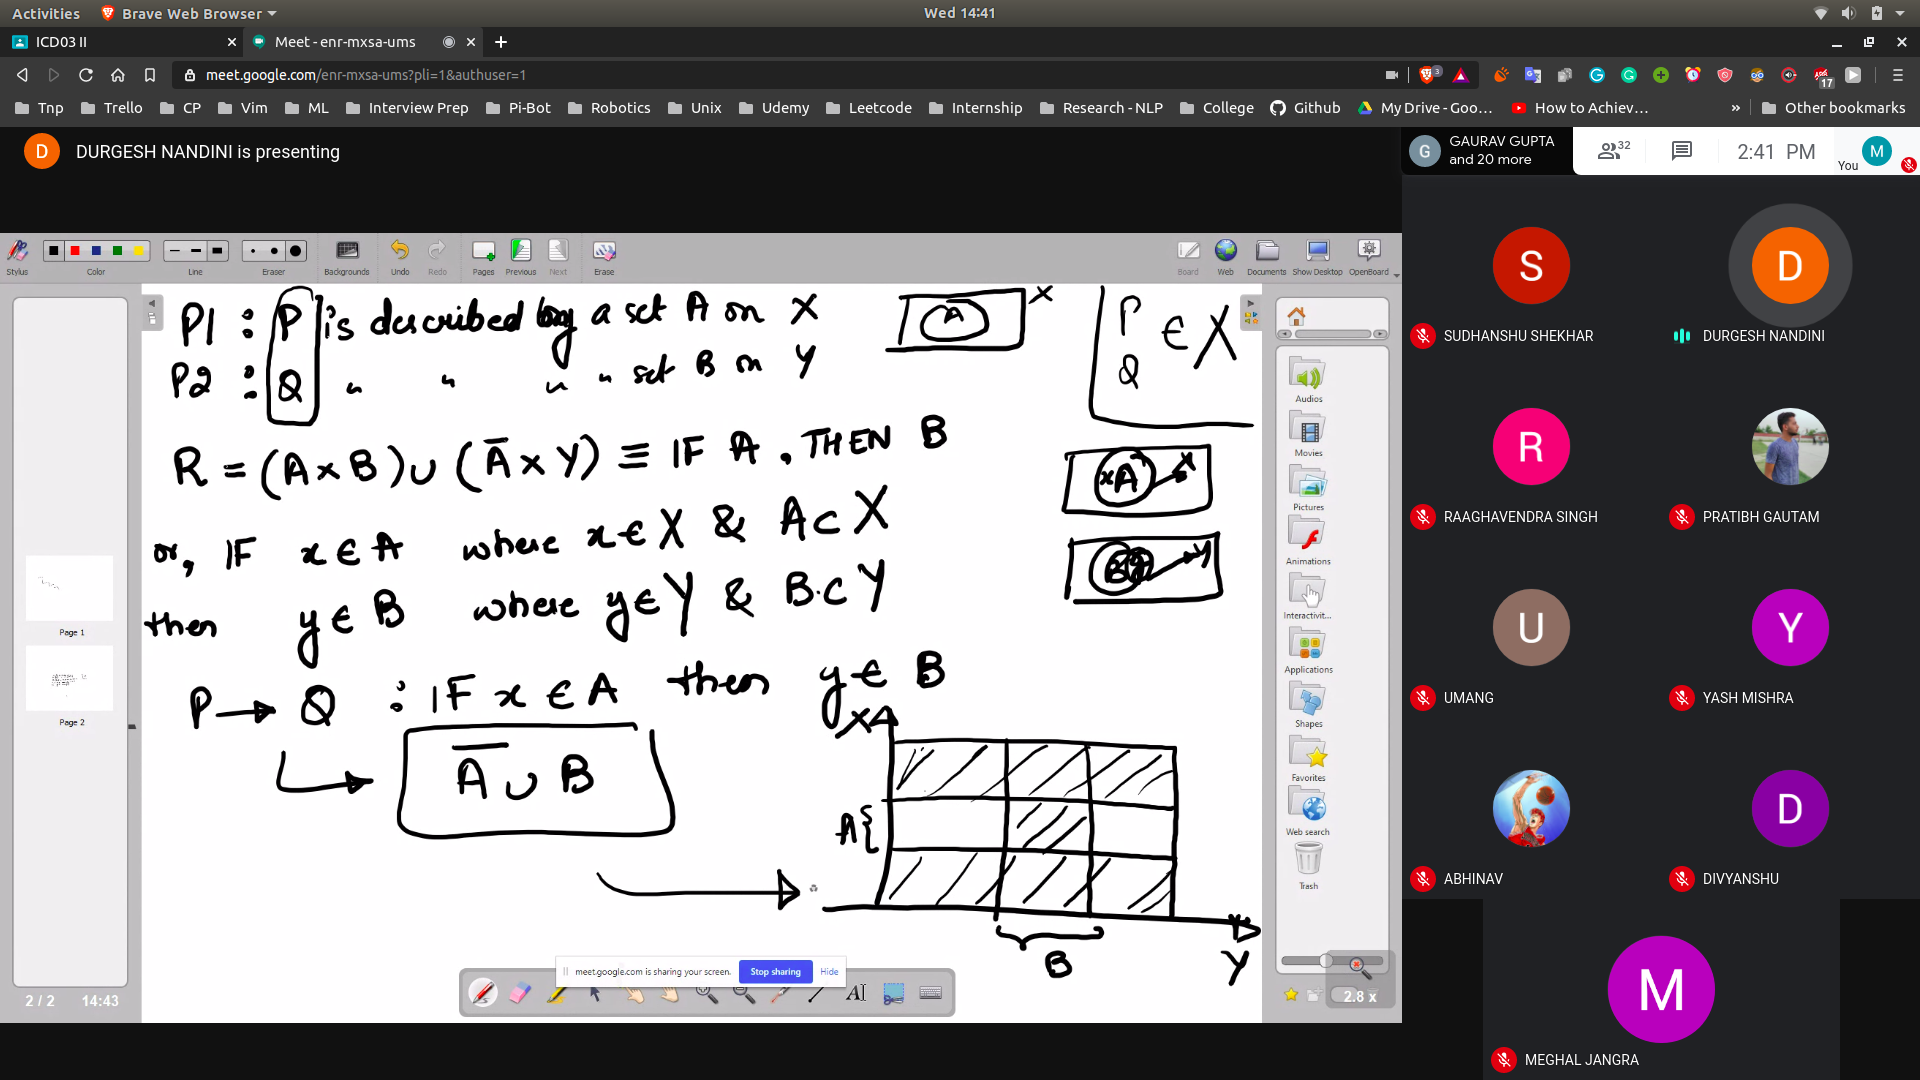 Activities Brave Web Browser Wed 14:41
ICD03 II Meet - enr-mxsa-ums
meet.google.com/enr-mxsa-ums?pli=1&authuser=1 3 17
Tnp Trello CP Vim ML Interview Prep Pi-Bot Robotics Unix Udemy Leetcode Internship Research - NLP College Github My Drive - Goo... How to Achiev... » Other bookmarks
D DURGESH NANDINI is presenting
G GAURAV GUPTA and 20 more 32 2:41 PM You M
Stylus Color Line Eraser Backgrounds Undo Redo Pages Previous Next Erase Board Web Documents Show Desktop OpenBoard
P1 : P is described by a set A on X
P2 : Q " " " " set B on Y
A X
P Q ∈ X
R = (A × B) ∪ (A̅ × Y) ≡ IF A, THEN B
or, IF x ∈ A where x ∈ X & A ⊂ X
then y ∈ B where y ∈ Y & B ⊂ Y
xA X
B Y
P → Q : IF x ∈ A then y ∈ B
A̅ ∪ B
X
A{
B
Y
Page 1
Page 2
2 / 2 14:43
meet.google.com is sharing your screen. Stop sharing Hide
Audios
Movies
Pictures
Animations
Interactivit...
Applications
Shapes
Favorites
Web search
Trash
2.8 x
S SUDHANSHU SHEKHAR
D DURGESH NANDINI
R RAAGHAVENDRA SINGH
PRATIBH GAUTAM
U UMANG
Y YASH MISHRA
ABHINAV
D DIVYANSHU
M MEGHAL JANGRA